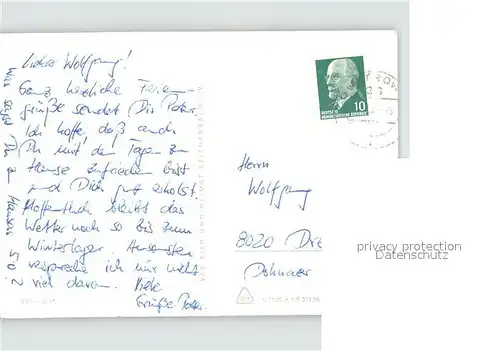 Lieber Wolfgang!
Ganz herzliche Ferien-
grüße sendet Dir Peter.
Ich hoffe, daß auch
Du mit den Tagen zu
Hause zufrieden bist
und Dich gut erholst.
Hoffentlich bleibt das
Wetter noch so bis zum
Winterlager. Ansonsten
verspreche ich mir nicht
viel davon. Viele
Grüße Peter.
10
DEUTSCHE
DEMOKRATISCHE REPUBLIK
Herrn
Wolfgang
8020 Dre
Dohnaer
privacy protection
Datenschutz